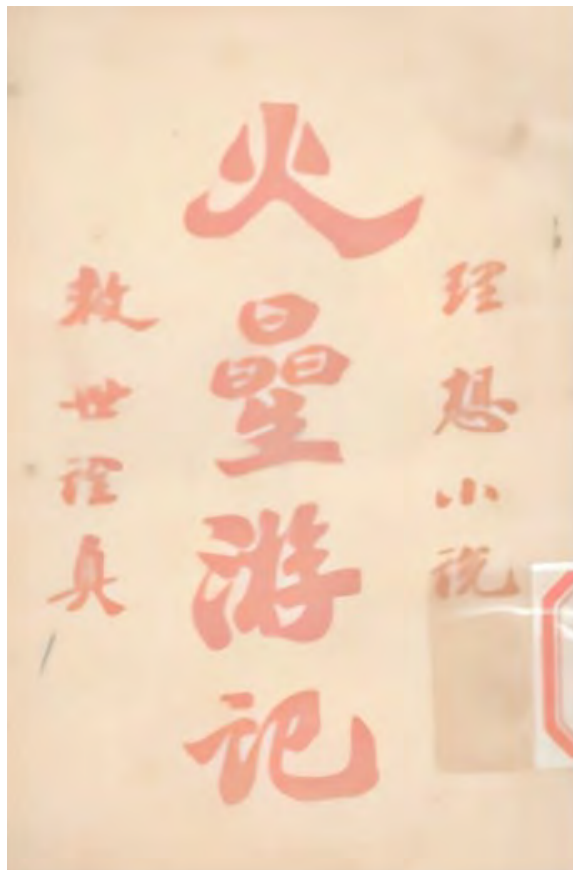 理想小說
火曐游記
救世詮真